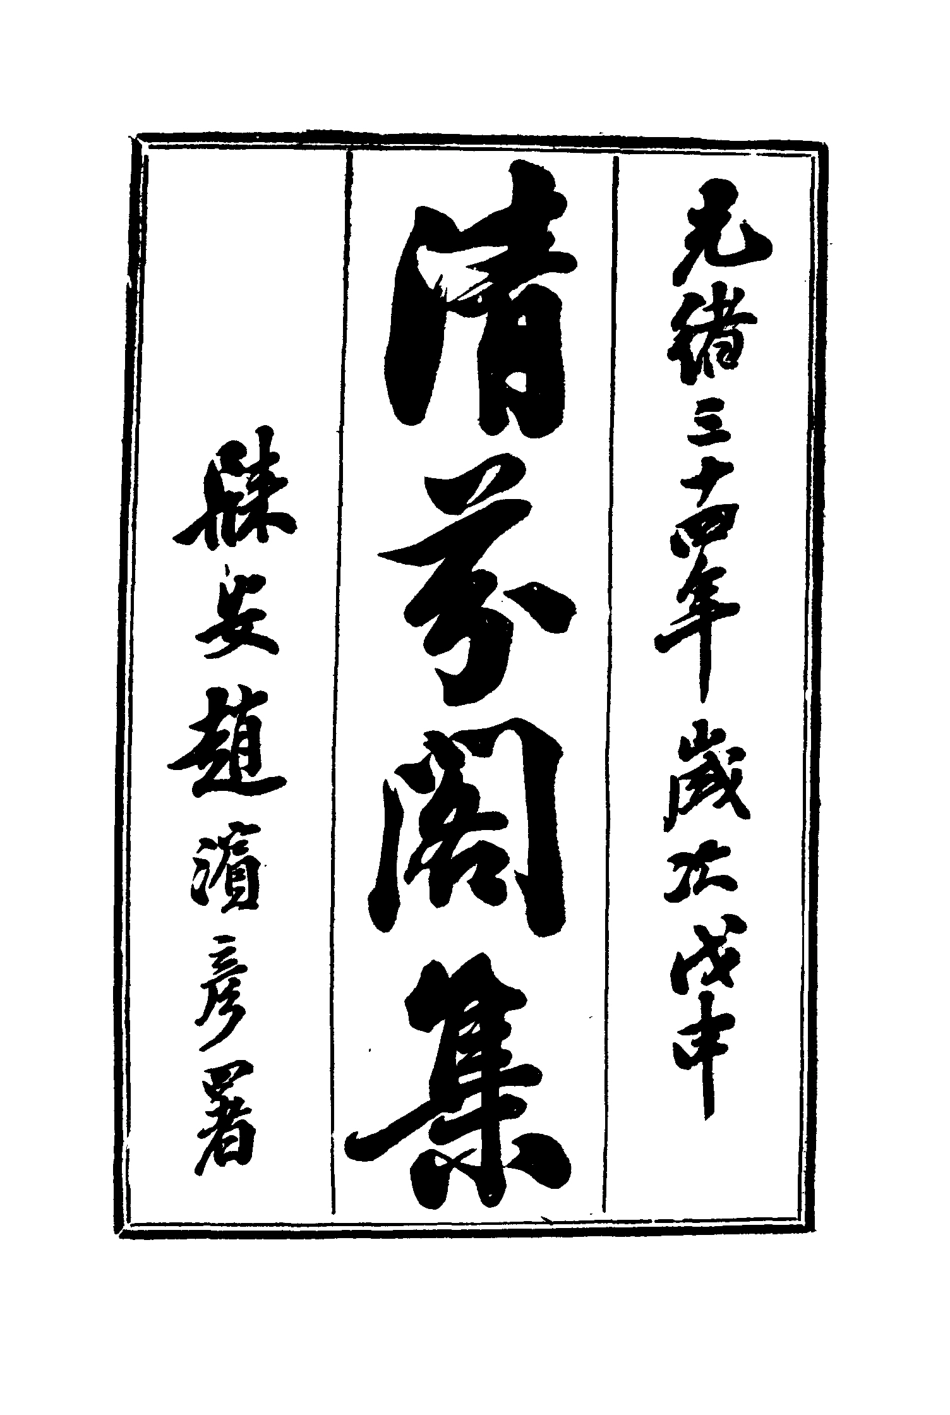 光緒三十四年歲次戊申
清芬閣集
歸安趙濱彥署